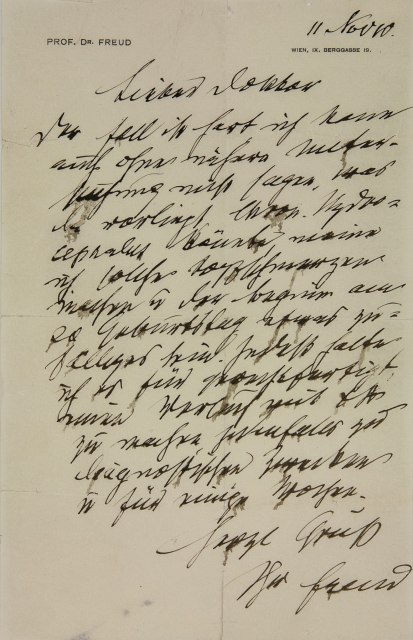 PROF. DR. FREUD
11 Nov 10.
WIEN, IX. BERGGASSE 19.
Lieber Doktor
Der Fall ist hart ich kann
auch ohne nähere Unter-
suchung nicht sagen, was
da vorliegt. Chron. Hydro-
cephalus könnte, meine
ich solche Kopfschmerzen
machen u der Beginn am
Geburtstag etwas zu-
fälliges sein. halte
ich es für gerechtfertigt
einen Versuch mit ΨA
zu machen jedenfalls zu
diagnostischen Zwecken
u für einige Wochen.
Herzl Gruß
Ihr Freud